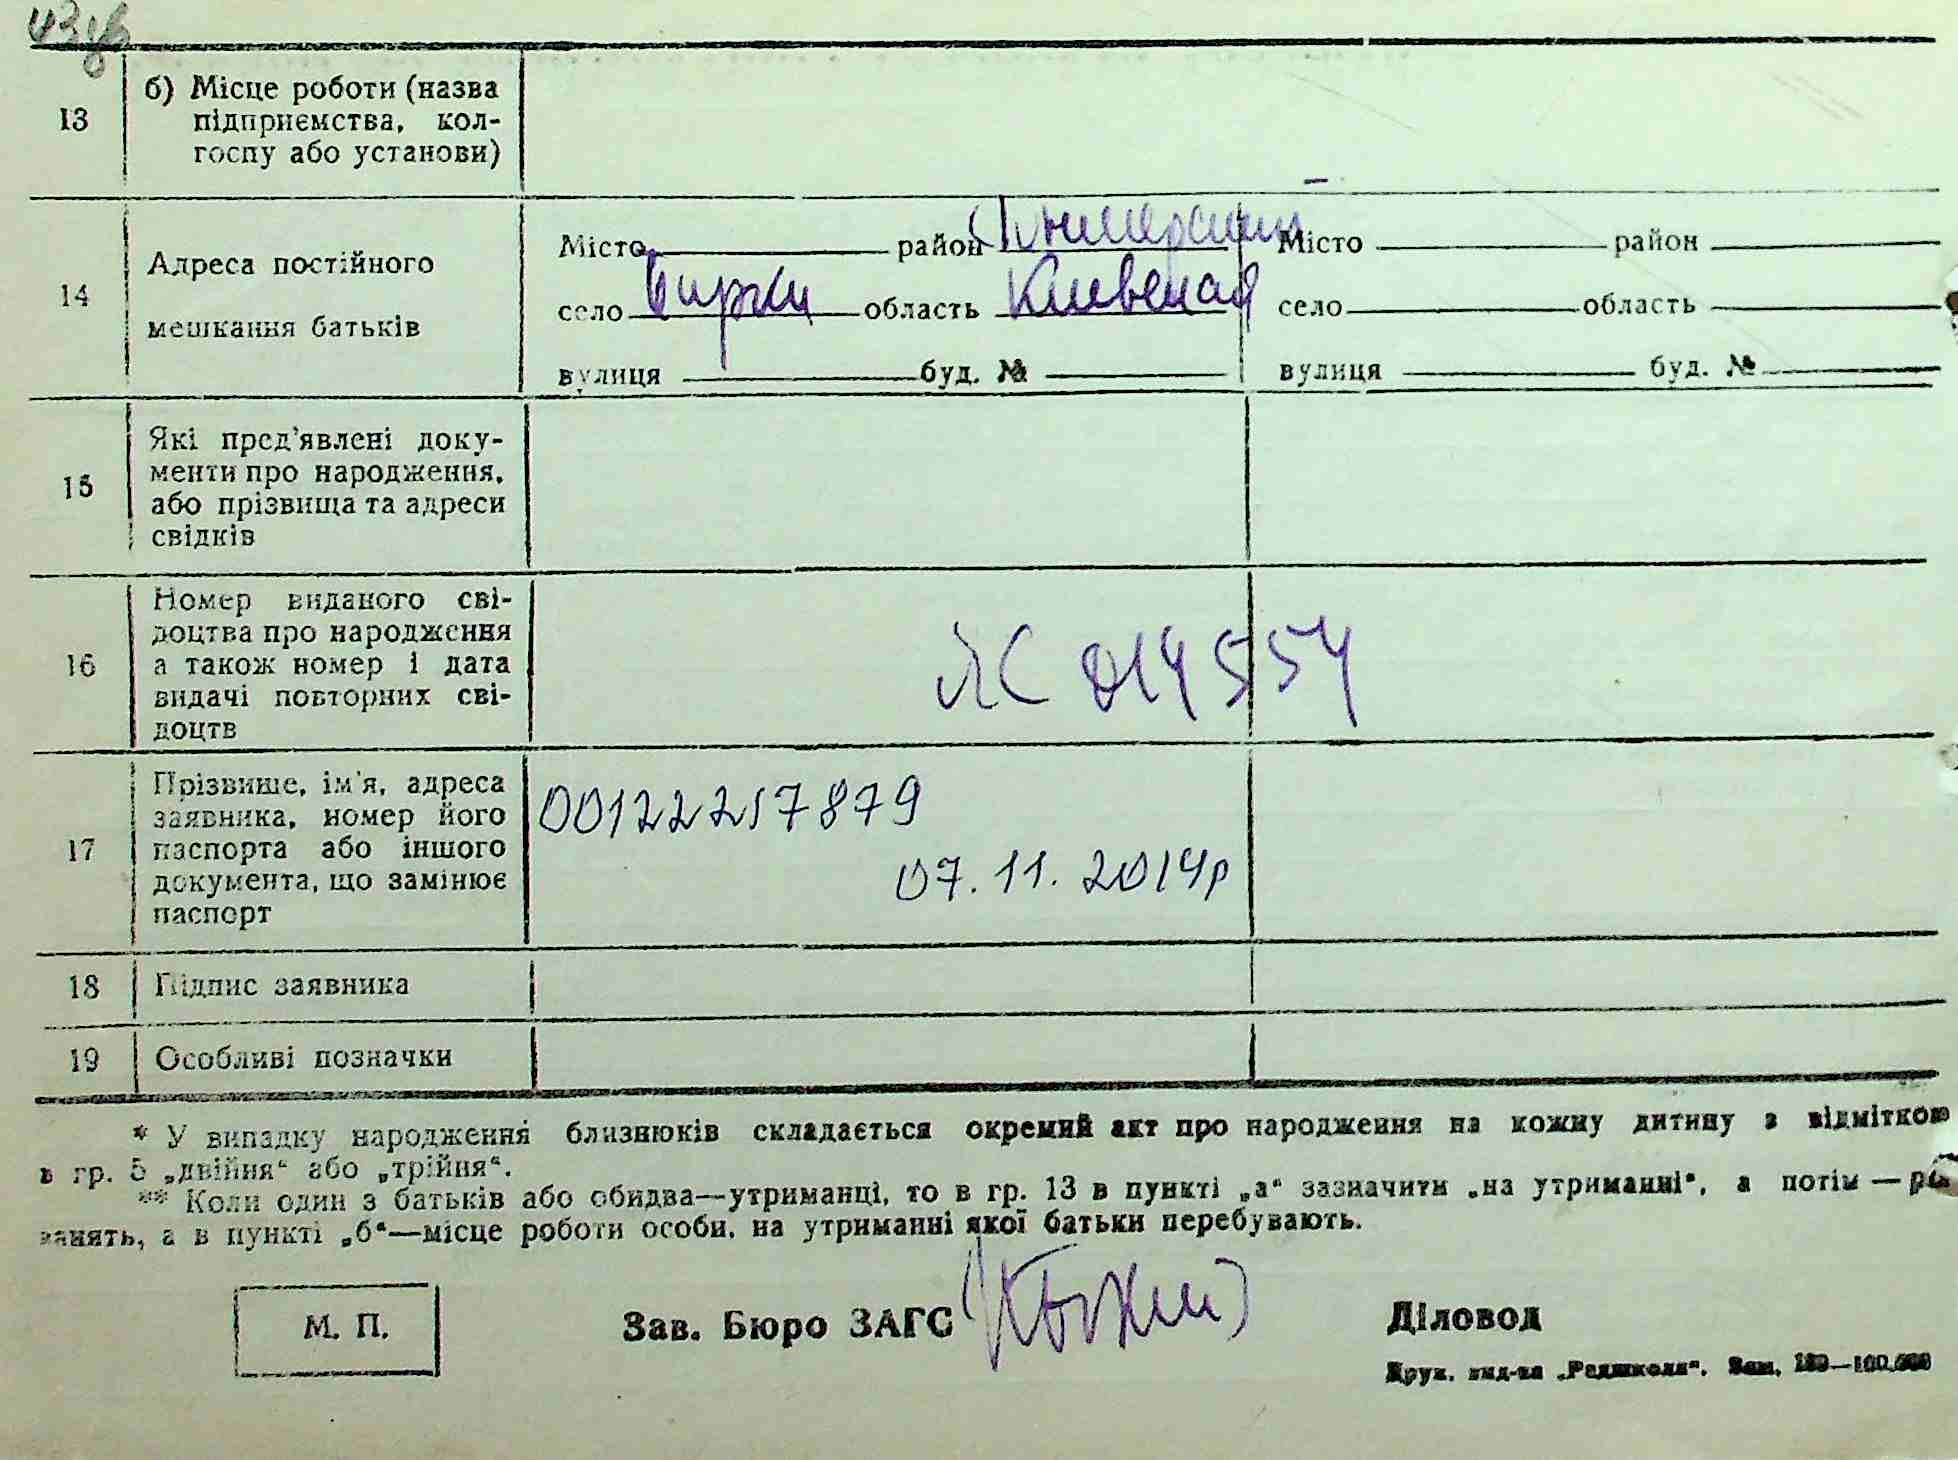 43зв
13 б) Місце роботи (назва
підприємства, кол-
госпу або установи)
14 Адреса постійного
мешкання батьків
Місто район Димерський Місто район
село область Киевская село область
вулиця буд. № вулиця буд. №
15 Які пред’явлені доку-
менти про народження,
або прізвища та адреси
свідків
16 Номер виданого сві-
доцтва про народження
а також номер і дата
видачі повторних сві-
доцтв
ЯС 014554
17 Прізвище, ім’я, адреса
заявника, номер його
паспорта або іншого
документа, що замінює
паспорт
00122217879
07.11.2014р
18 Підпис заявника
19 Особливі позначки
* У випадку народження близнюків складається окремий акт про народження на кожну дитину з відміткою
в гр. 5 „двійня“ або „трійня“.
** Коли один з батьків або обидва—утриманці, то в гр. 13 в пункті „а“ зазначити „на утриманні“, а потім —
занять, а в пункті „б“—місце роботи особи, на утриманні якої батьки перебувають.
М. П. Зав. Бюро ЗАГС Діловод
Друк. вид-ва „Радшкола“. Зам. 189—100.000